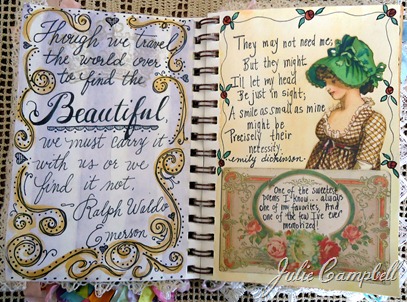 Though we travel
the world over
to find the
Beautiful,
we must carry it
with us or we
find it not.
Ralph Waldo
Emerson
They may not need me;
But they might.
I'll let my head
Be just in sight;
A smile as small as mine
might be
Precisely their
necessity.
emily dickinson.
One of the sweetest
poems I know... always
one of my favorites. And
one of the few I've ever
memorized!
Julie Campbell